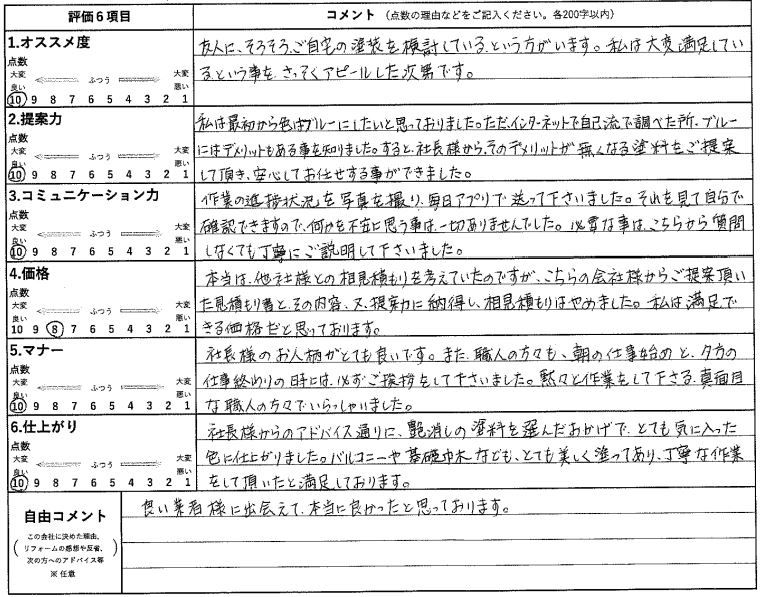 評価6項目
コメント （点数の理由などをご記入ください。各200字以内）
1.オススメ度
点数
大変良い ふつう 大変悪い
10 9 8 7 6 5 4 3 2 1
友人に、そろそろ、ご自宅の塗装を検討している、という方がいます。私は大変満足してい
る、という事を、さっそくアピールした次第です。
2.提案力
点数
大変良い ふつう 大変悪い
10 9 8 7 6 5 4 3 2 1
私は最初から色はブルーにしたいと思っておりました。ただ、インターネットで自己流で調べた所、ブルー
にはデメリットもある事を知りました。すると、社長様から、そのデメリットが無くなる塗料をご提案
して頂き、安心してお任せする事ができました。
3.コミュニケーション力
点数
大変良い ふつう 大変悪い
10 9 8 7 6 5 4 3 2 1
作業の進捗状況を写真を撮り、毎日アプリで送って下さいました。それを見て自分で
確認できますので、何かを不安に思う事は一切ありませんでした。必要な事は、こちらから質問
しなくても丁寧にご説明して下さいました。
4.価格
点数
大変良い ふつう 大変悪い
10 9 8 7 6 5 4 3 2 1
本当は、他社様との相見積もりを考えていたのですが、こちらの会社様からご提案頂い
た見積もり書と、その内容、又、提案力に納得し、相見積もりはやめました。私は満足で
きる価格だと思っております。
5.マナー
点数
大変良い ふつう 大変悪い
10 9 8 7 6 5 4 3 2 1
社長様のお人柄がとても良いです。また、職人の方々も、朝の仕事始めと、夕方の
仕事終わりの時には、必ずご挨拶をして下さいました。黙々と作業をして下さる、真面目
な職人の方々でいらっしゃいました。
6.仕上がり
点数
大変良い ふつう 大変悪い
10 9 8 7 6 5 4 3 2 1
社長様からのアドバイス通りに、艶消しの塗料を選んだおかげで、とても気に入った
色に仕上がりました。バルコニーや基礎巾木なども、とても美しく塗ってあり、丁寧な作業
をして頂いたと満足しております。
自由コメント
（この会社に決めた理由、
リフォームの感想や反省、
次の方へのアドバイス等）
※任意
良い業者様に出会えて、本当に良かったと思っております。